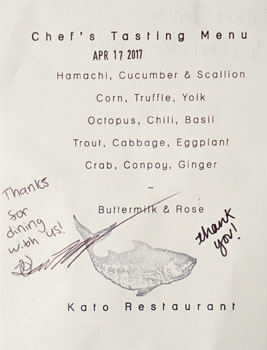 Chef's Tasting Menu
APR 17 2017
Hamachi, Cucumber & Scallion
Corn, Truffle, Yolk
Octopus, Chili, Basil
Trout, Cabbage, Eggplant
Crab, Conpoy, Ginger
~
Buttermilk & Rose
Thanks
for
dining
with us!
thank
you!
Kato Restaurant